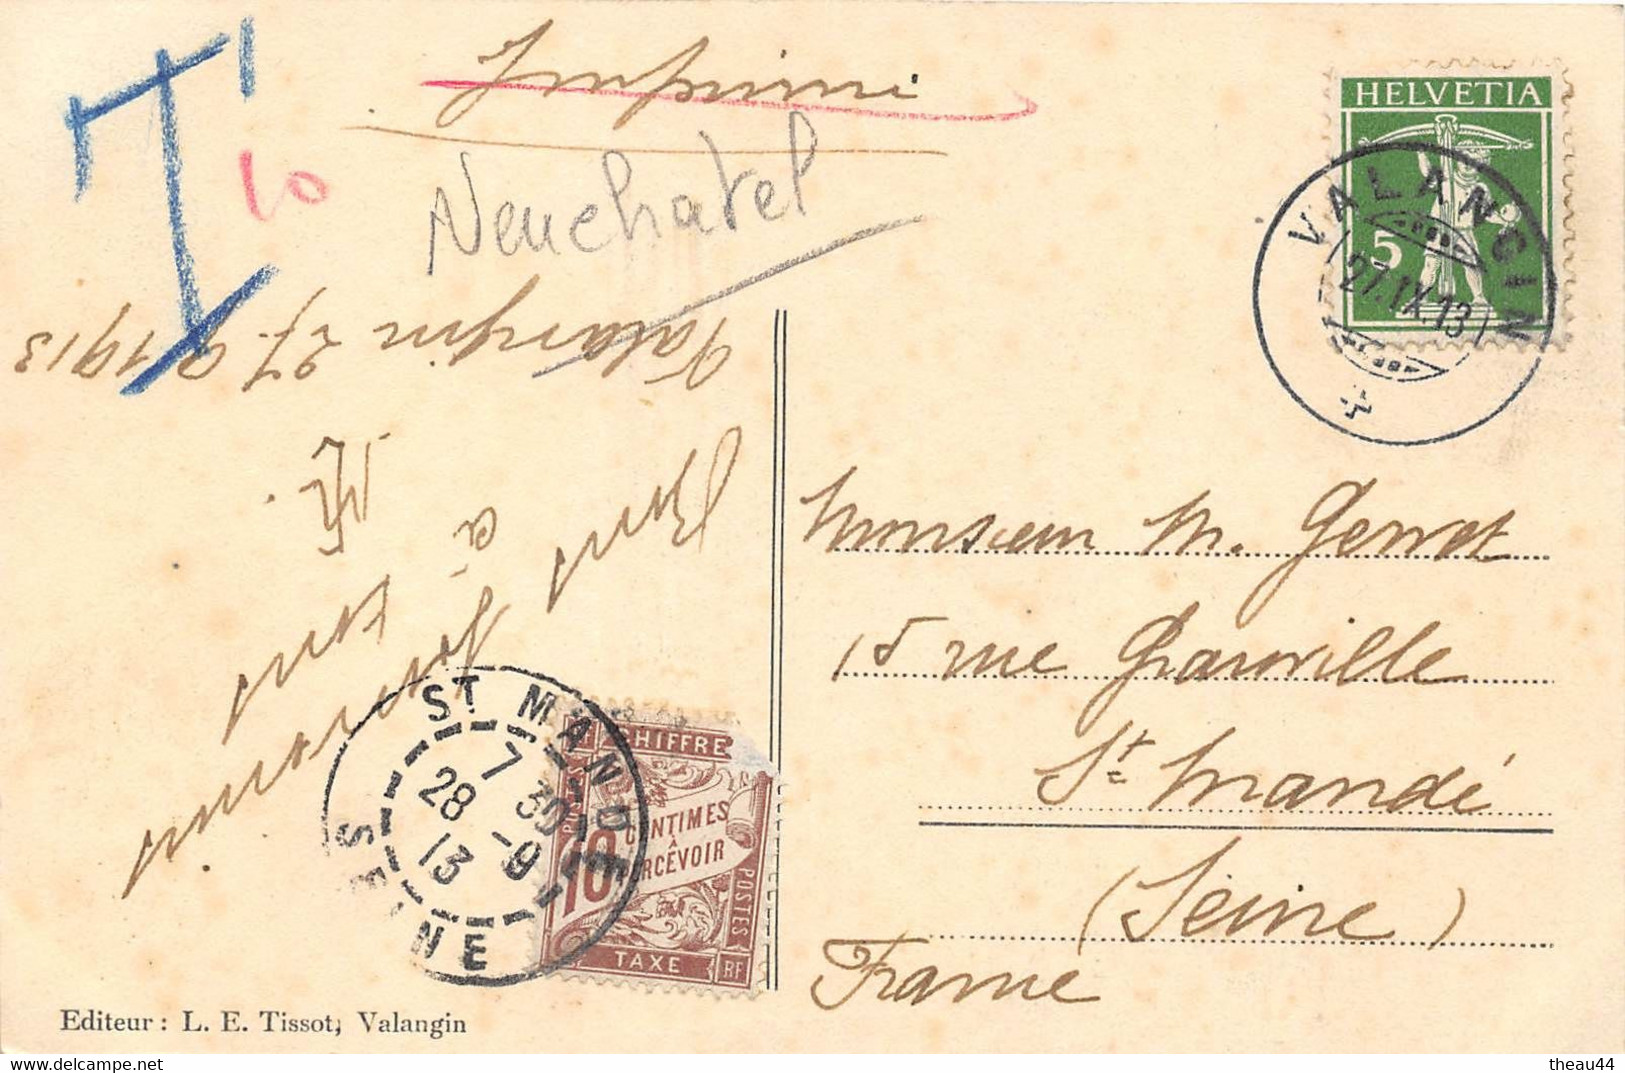 T
10
Imprimé
Neuchatel
HELVETIA
5
VALANGIN
27.IX.13
Valangin 27.9.1913
à
Monsieur M. Gerret
15 rue Granville
St Mandé
(Seine)
France
ST MANDÉ
7 30
28 -9
13
SEINE
CHIFFRE
10 CENTIMES
A
PERCEVOIR
POSTES
TAXE
RF
Editeur : L. E. Tissot, Valangin
delcampe.net
theau44